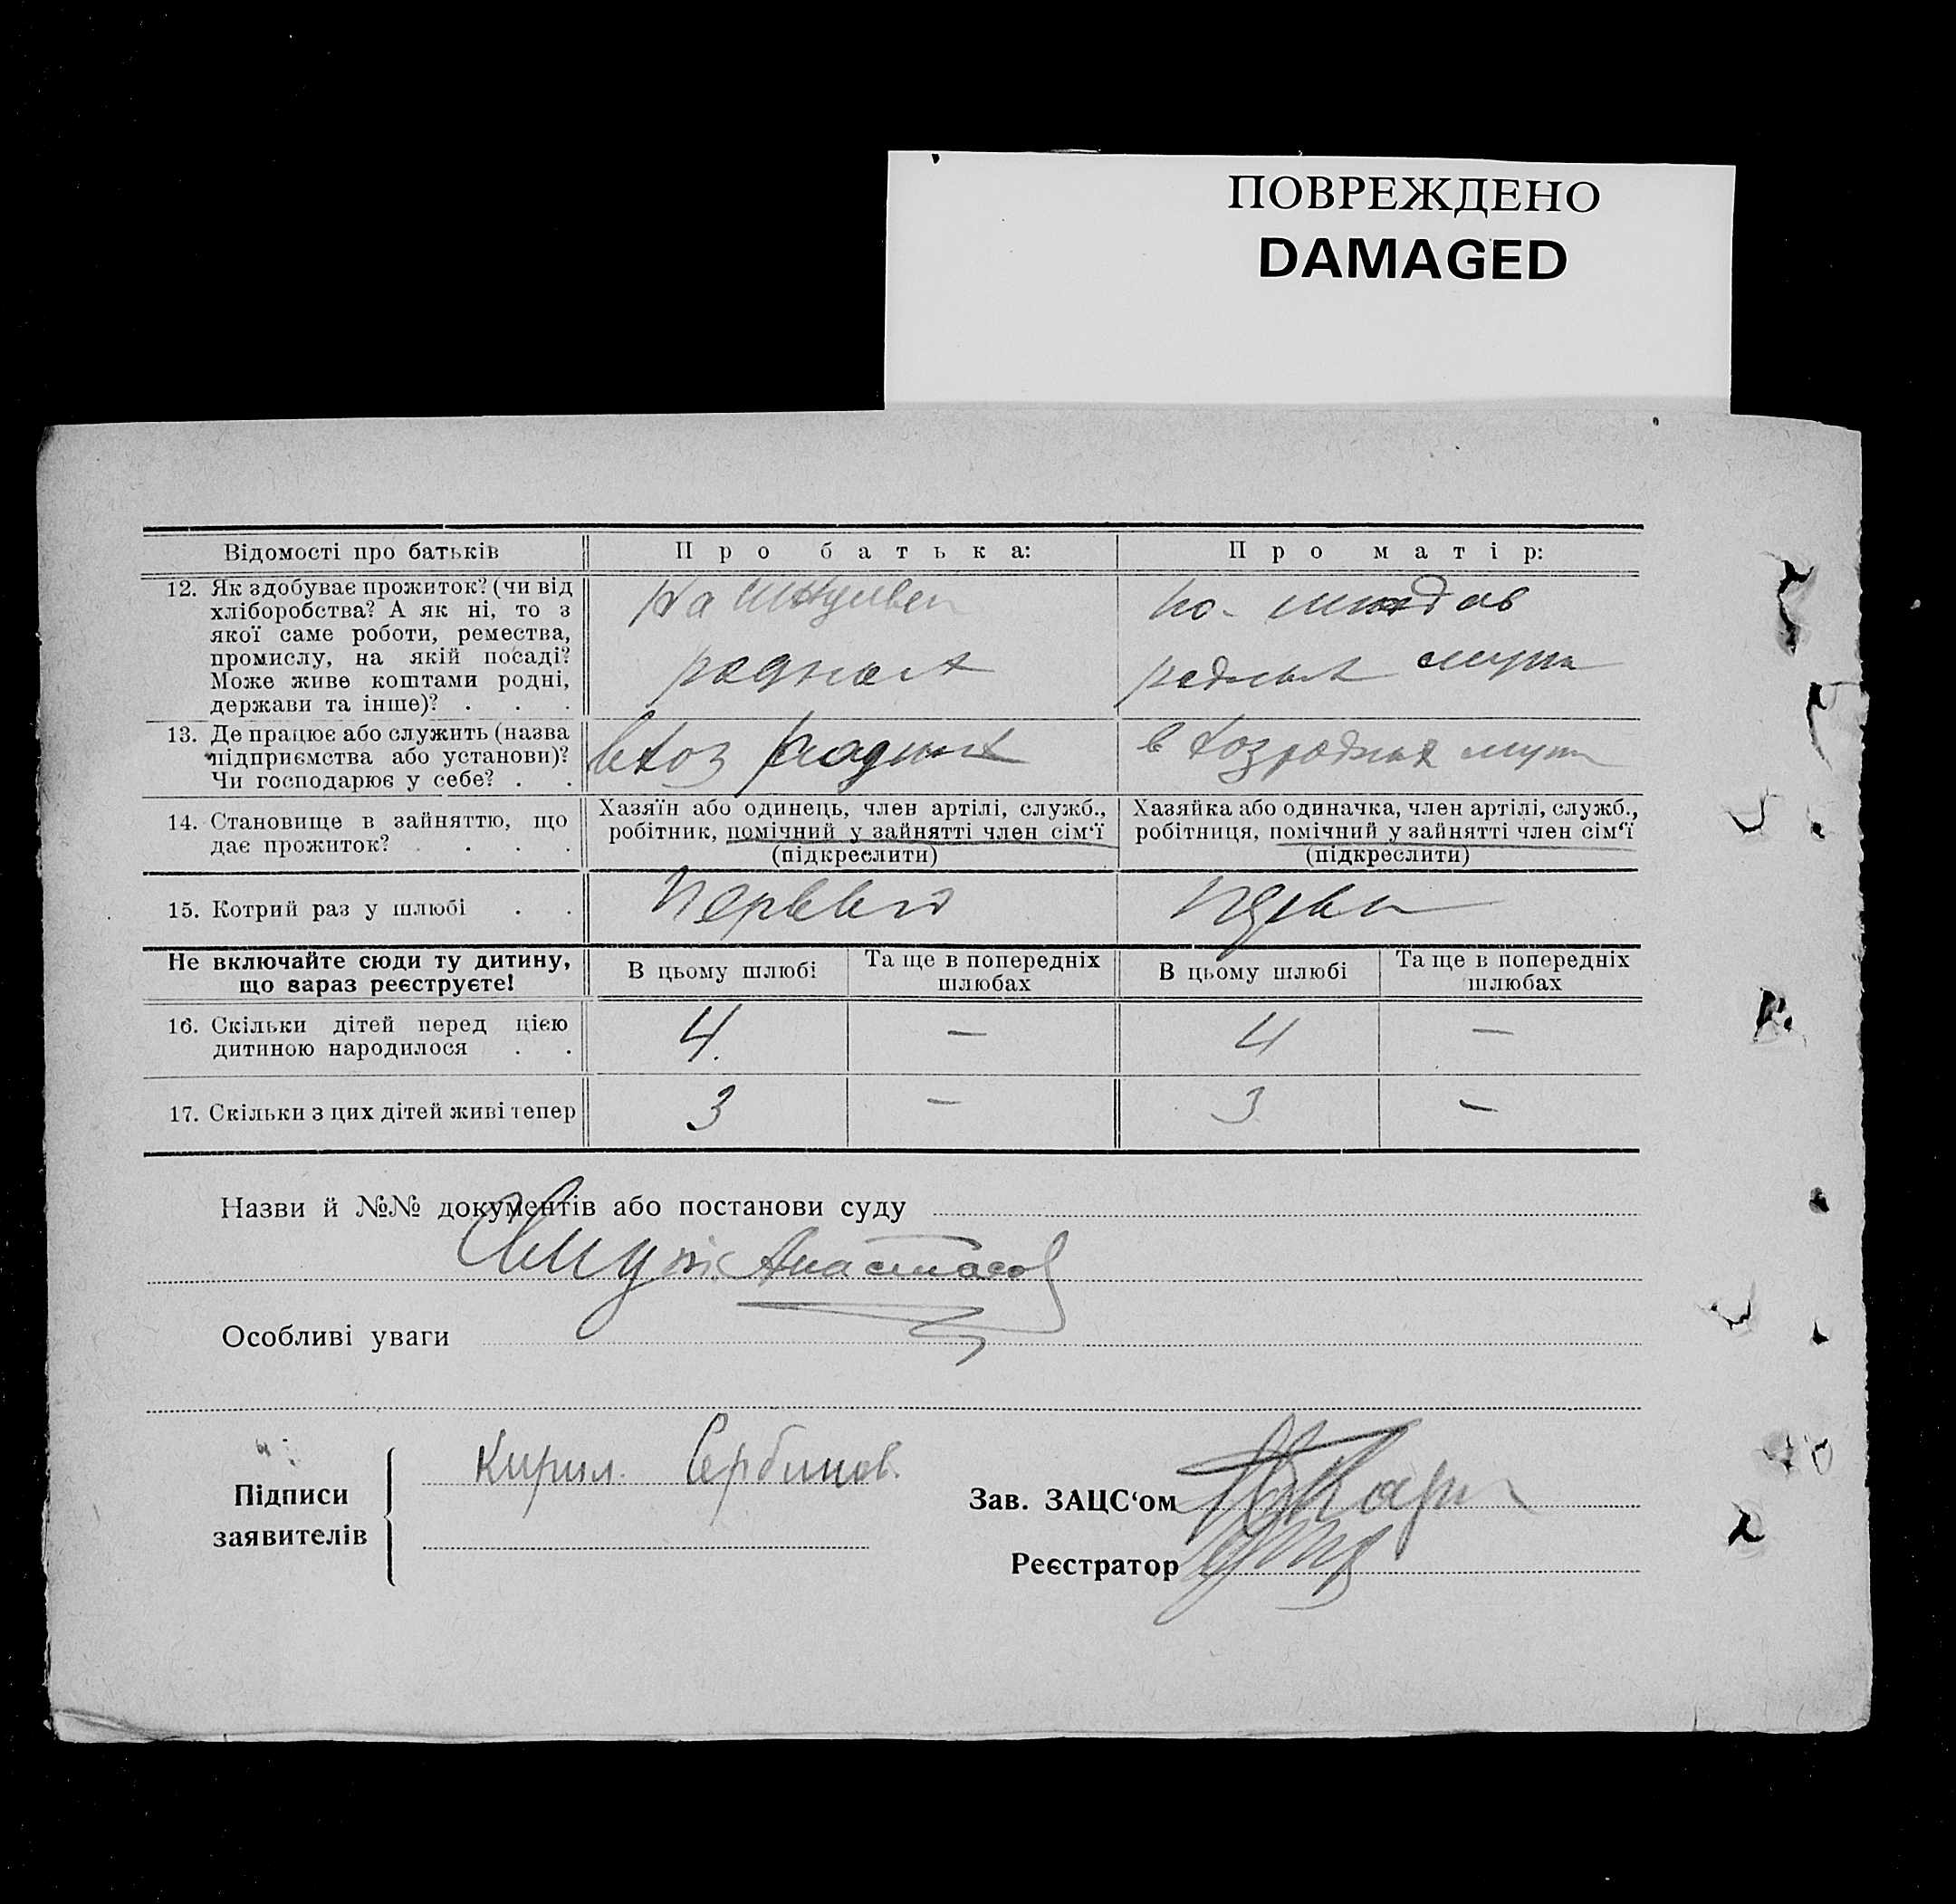 ПОВРЕЖДЕНО
DAMAGED
Відомості про батьків
Про батька:
Про матір:
12. Як здобуває прожиток? (чи від
хліборобства? А як ні, то з
якої саме роботи, ремества,
промислу, на якій посаді?
Може живе коштами родні,
держави та інше)? . . .
На
родных
родных мужа
13. Де працює або служить (назва
підприємства або установи)?
Чи господарює у себе? . .
в хоз родных
в хоз родных мужа
14. Становище в зайняттю, що
дає прожиток? . . . .
Хазяїн або одинець, член артілі, служб.,
робітник, помічний у зайнятті член сім‘ї
(підкреслити)
Хазяйка або одиначка, член артілі, служб.,
робітниця, помічний у зайнятті член сім‘ї
(підкреслити)
15. Котрий раз у шлюбі . .
Первый
Не включайте сюди ту дитину,
що зараз реєструєте!
В цьому шлюбі
Та ще в попередніх
шлюбах
В цьому шлюбі
Та ще в попередніх
шлюбах
16. Скільки дітей перед цією
дитиною народилося . .
4. — 4 —
17. Скільки з цих дітей живі тепер
3 — 3 —
Назви й №№ документів або постанови суду
Анастасов
Особливі уваги
Підписи
заявителів
Кирил. Сербинов.
Зав. ЗАЦС‘ом
Реєстратор